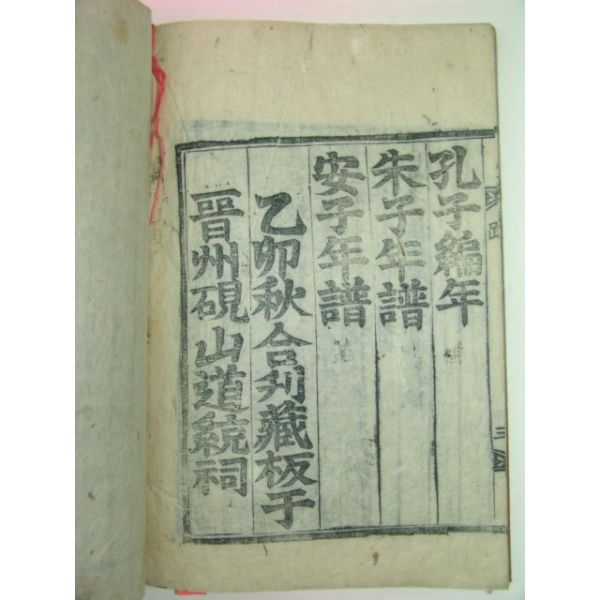 孔子編年
朱子年譜
安子年譜
乙卯秋合刋藏板于
晉州硯山道統祠
三